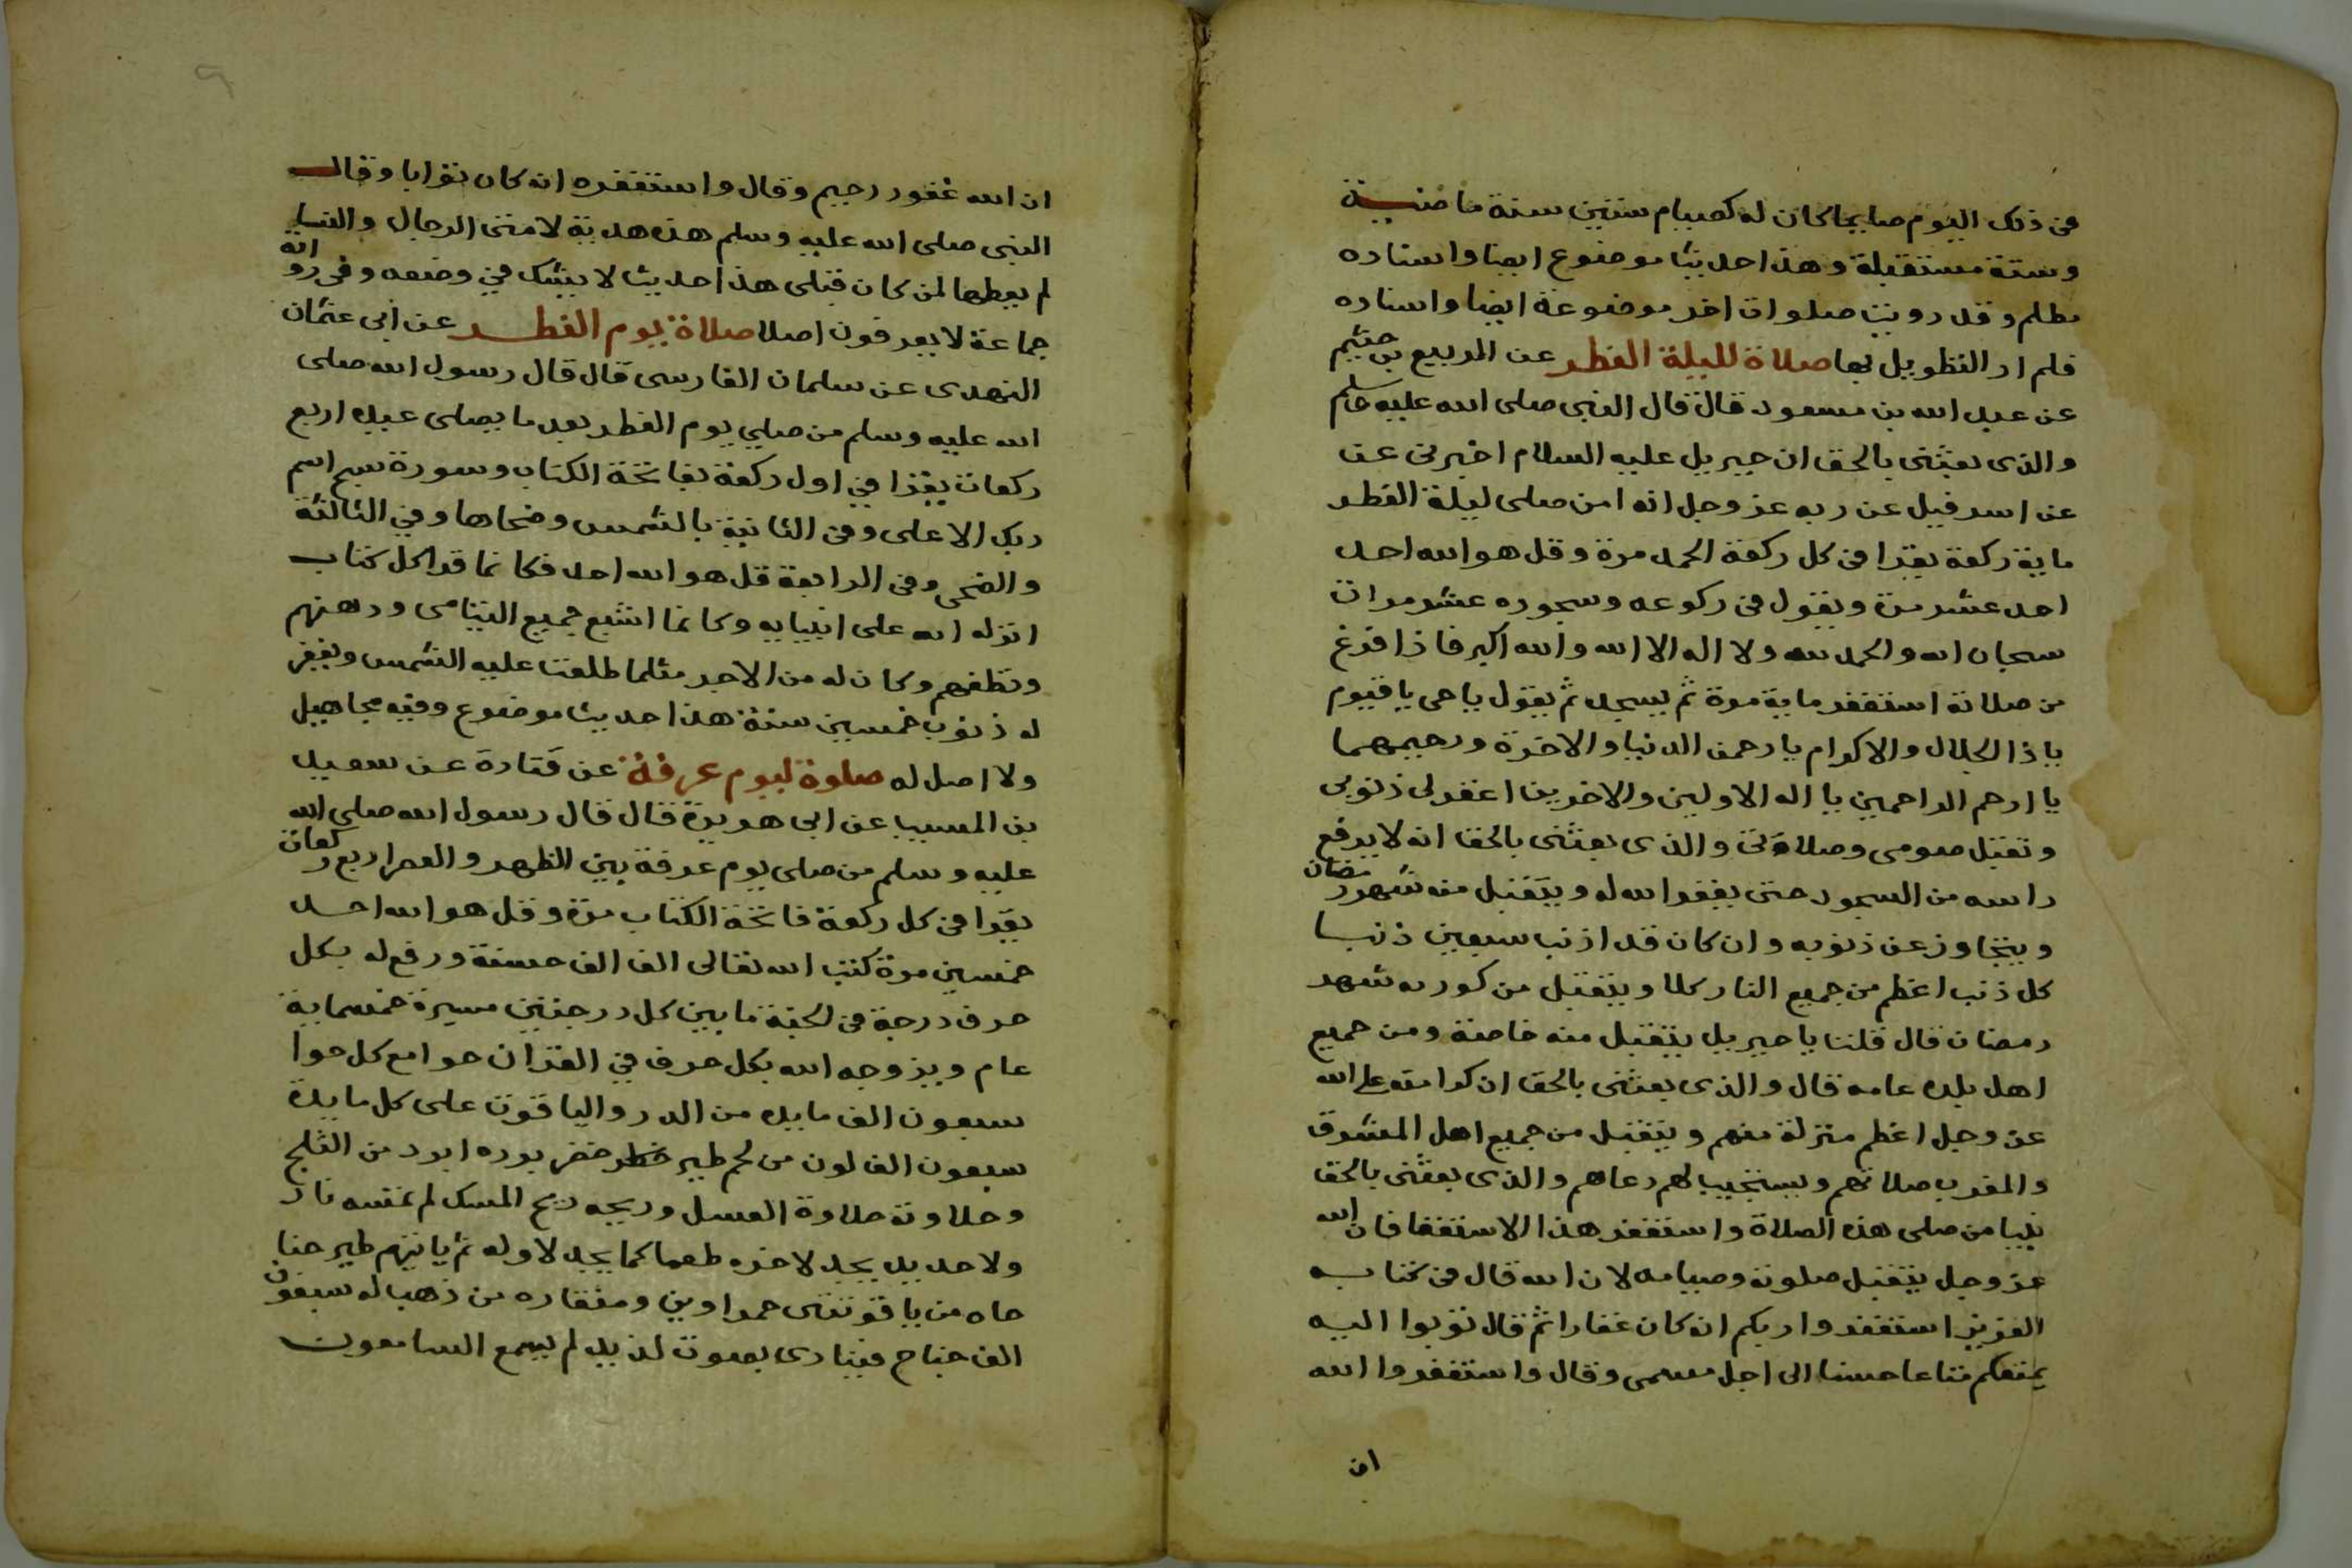 فى ذلك اليوم صايما كان له كصيام ستين سنة ماضية
وستة مستقبلة وهذا حديثا موضوع ايضا واسناده
مظلم وقد رويت صلوات اخر موضوعة ايضا واسناده
فلم ار التطويل بها صلاة لليلة الفطر عن الربيع بن خثيم
عن عبد الله بن مسعود قال قال النبى صلى الله عليه وسلم
والذى بعثنى بالحق ان جبريل عليه السلام اخبرنى عن
عن اسرفيل عن ربه عز وجل انه امن صلى ليلة الفطر
ماية ركعة يقرا فى كل ركعة الحمد مرة وقل هو الله احد
احد عشر مرة ويقول فى ركوعه وسجوده عشر مرات
سبحان الله والحمد لله ولا اله الا الله والله اكبر فاذا فرغ
من صلاته استغفر ماية مرة ثم يسجد ثم يقول ياحى ياقيوم
ياذا الجلال والاكرام يا رحمن الدنيا والاخرة ورحيمهما
يا ارحم الراحمين يا اله الاولين والاخرين اغفر لى ذنوبى
وتقبل صومى وصلاتى والذى بعثنى بالحق انه لا يرفع
راسه من السجود حتى يغفر الله له ويتقبل منه شهر رمضان
ويتجاوز عن ذنوبه وان كان قد اذنب سبعين ذنبا
كل ذنب اعظم من جميع النار كلا ويتقبل من كوره شهر
رمضان قال قلت يا جبريل يتقبل منه خاصة ومن جميع
اهل بلده عامه قال والذى بعثنى بالحق ان كرامته على الله
عز وجل اعظم منزلة منهم ويتقبل من جميع اهل المشرق
والمغرب صلاتهم ويستجيب لهم دعاهم والذى بعثنى بالحق
نبيا من صلى هذه الصلاة واستغفر هذا الاستغفا فان الله
عز وجل يتقبل صلوته وصيامه لان الله قال فى كتابه
العزيز استغفروا ربكم انه كان غفارا ثم قال توبوا اليه
يمتعكم متاعا حسنا الى اجل مسمى وقال واستغفروا الله
ان
ان الله غفور رحيم وقال واستغفره انه كان توابا وقال
النبى صلى الله عليه وسلم هذه هدية لامتى الرجال والنسا
لم يعطها لمن كان قبلى هذا حديث لا يشك فى وضعه وفى رواته
جماعة لا يعرفون اصلا صلاة يوم الفطر عن ابى عثمان
النهدى عن سلمان الفارسى قال قال رسول الله صلى
الله عليه وسلم من صلي يوم الفطر بعد ما يصلى عيده اربع
ركعات يقرا في اول ركعة بفاتحة الكتاب وسورة سبح اسم
ربك الاعلى وفى الثانية بالشمس وضحاها وفي الثالثة
والضحى وفى الرابعة قل هو الله احد فكانما قرا كل كتاب
انزله الله على انبيايه وكانما اشبع جميع اليتامى ودهنهم
ونظفهم وكان له من الاجر مثلما طلعت عليه الشمس ويغفر
له ذنوب خمسين سنة هذا حديث موضوع وفيه مجاهيل
ولا اصل له صلوة ليوم عرفة عن قتادة عن سعيد
بن المسيب عن ابى هريرة قال قال رسول الله صلى الله
عليه وسلم من صلى يوم عرفة بين الظهر والعصر اربع ركعات
يقرا فى كل ركعة فاتحة الكتاب مرة وقل هو الله احد
خمسين مرة كتب الله تعالى الف الف حسنة ورفع له بكل
حرف درجة فى الجنة ما بين كل درجتين مسيرة خمسماية
عام ويزوجه الله بكل حرف في القران حوا مع كل حوا
سبعون الف مايده من الدر والياقوت على كل مايدة
سبعون الف لون من لحم طير خضر برده ابرد من الثلج
وحلاوته حلاوة العسل وريحه ريح المسك لم تمسه نار
ولا حديد يجد لاخره طعما كما يجد لاوله ثم ياتيهم طير جنا
حاه من ياقوتتى حمراوين ومنقاره من ذهب له سبعون
الف جناح فينادى بصوت لذيذ لم يسمع السامعون